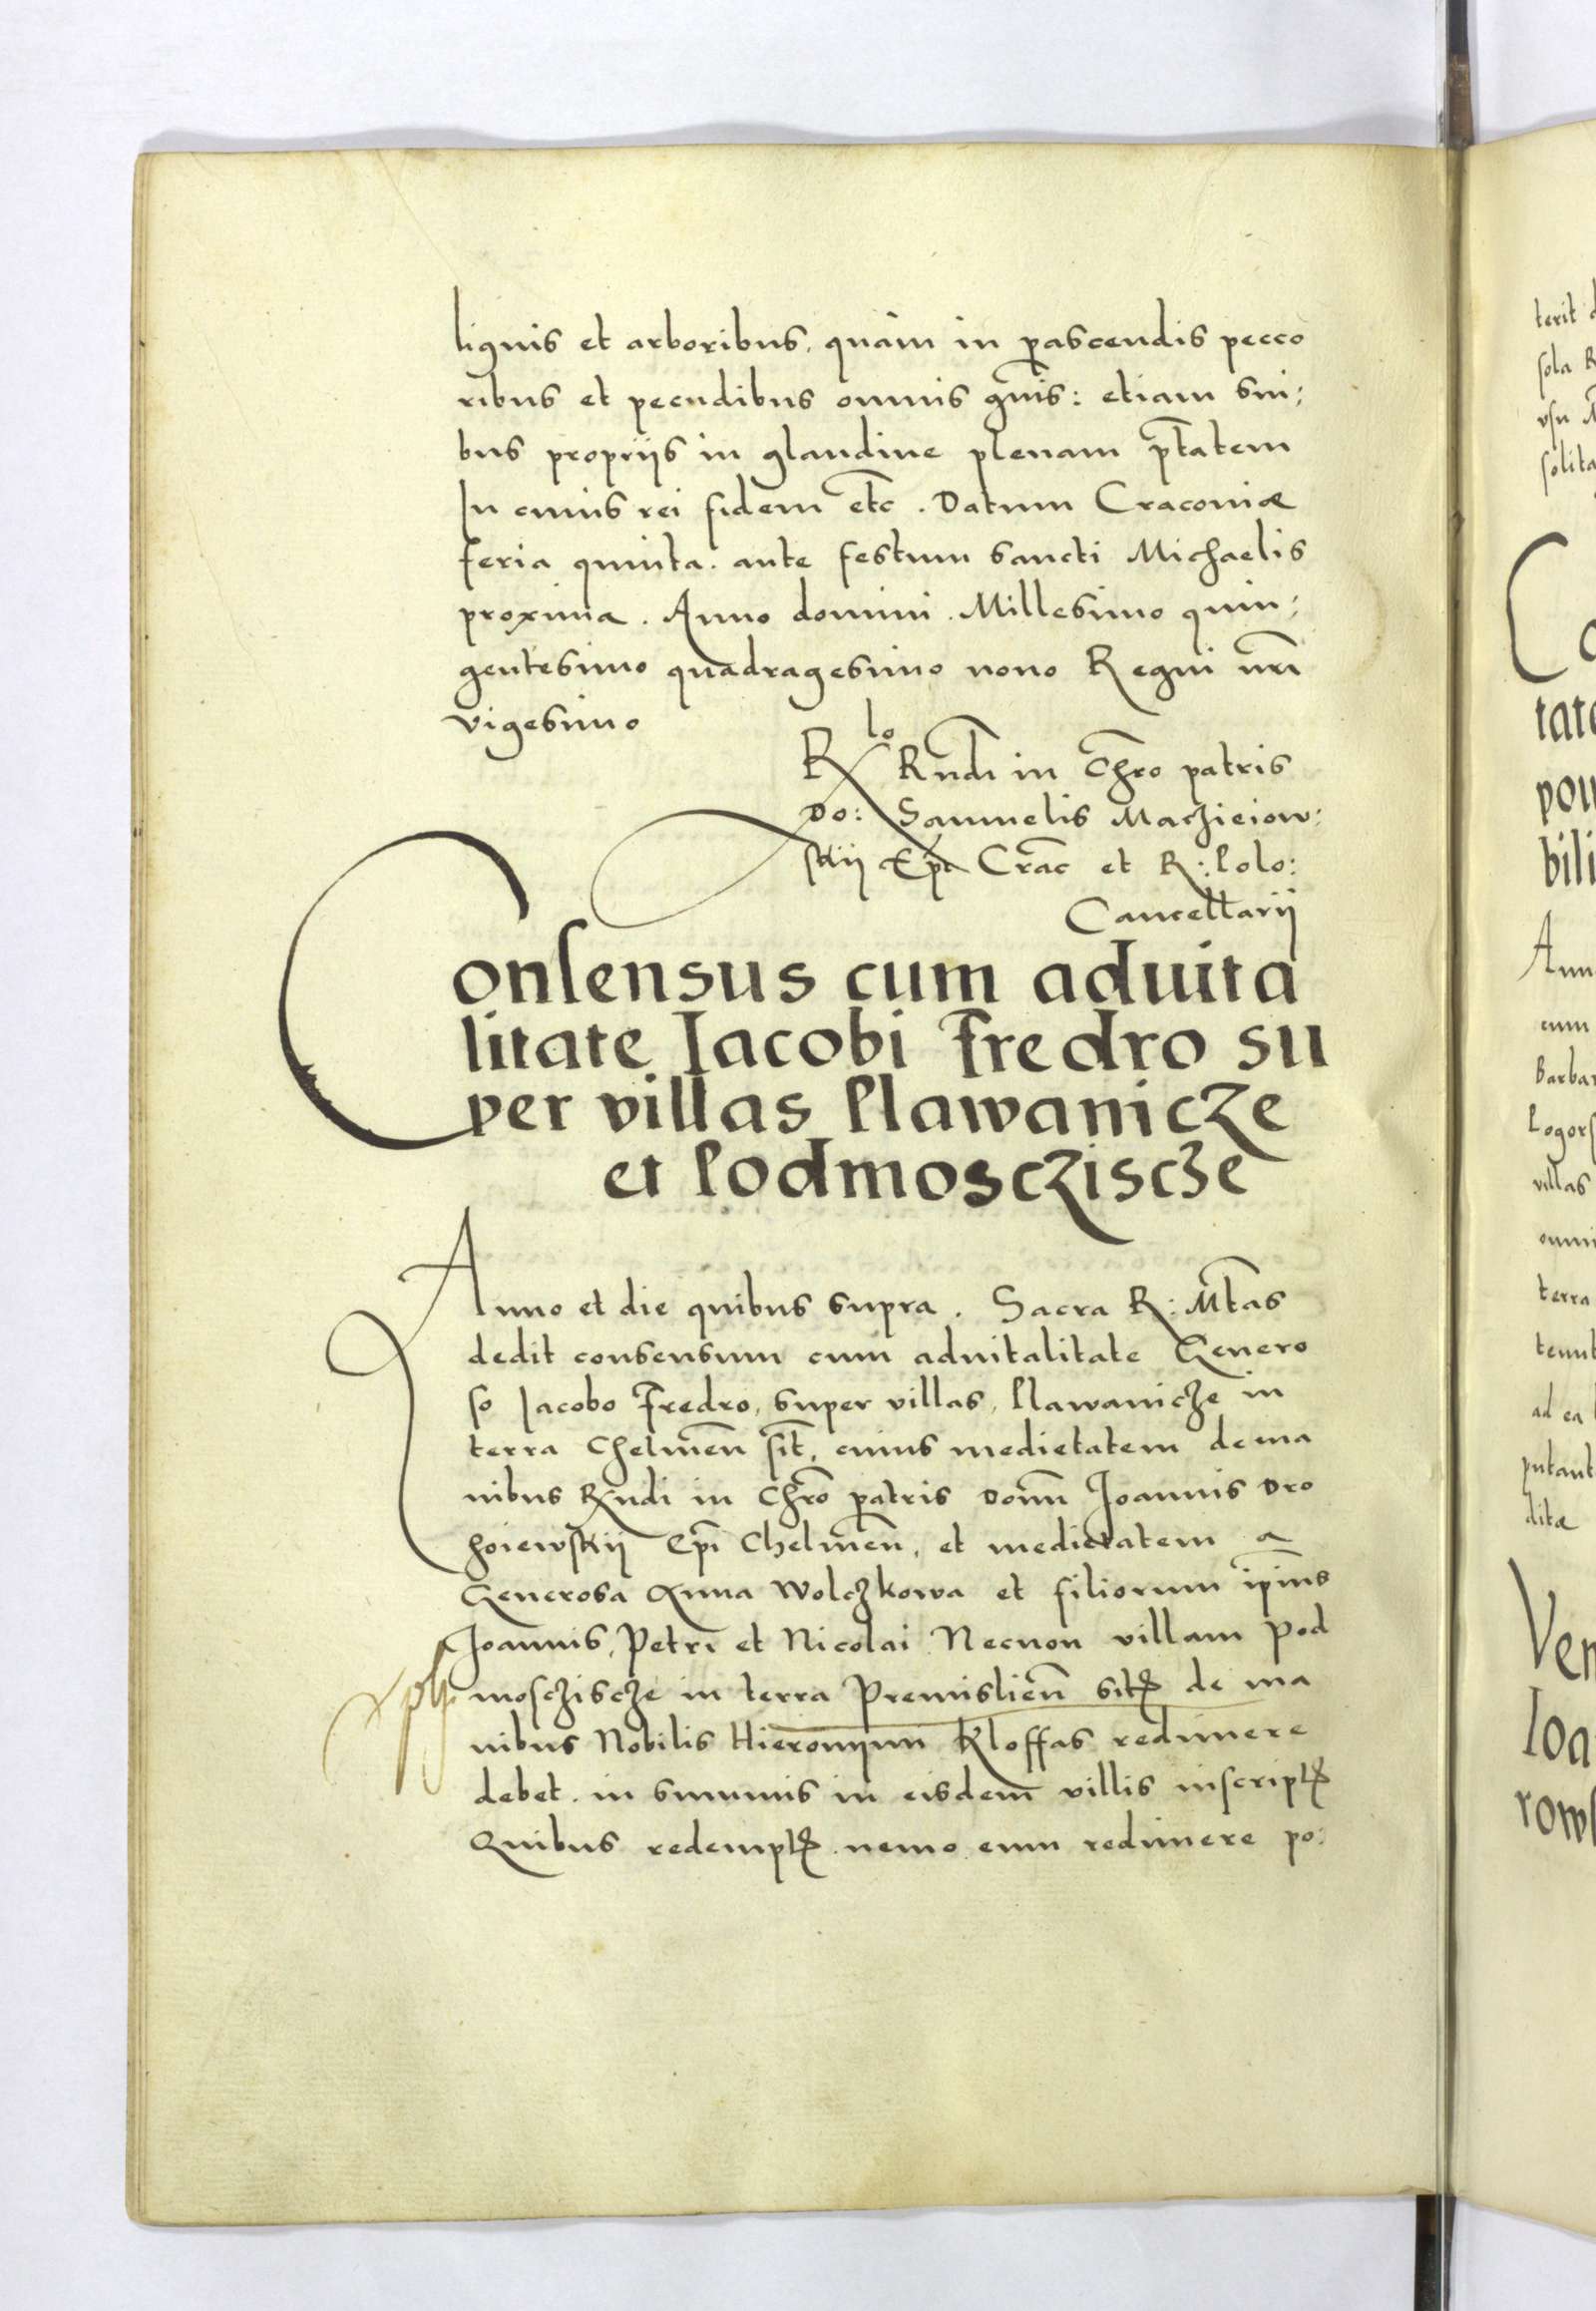 lignis et arboribus, quam in pascendis pecco
ribus et pecudibus omnis gn̄is: etiam sui:
bus propriis in glandine plenam ptātem
In cuius rei fidem etc̄. Datum Cracoviæ
feria quinta. ante festum sancti Michaelis
proxima. Anno domini. Millesimo quin:
gentesimo quadragesimo nono Regni nrī
vigesimo
Rlo Rn̄di in Chr̄o patris
Do: Samuelis Maczieiow:
skii Ep̄i Crac̄ et R: Polo:
Cancellarii
Consensus cum aduita
litate Iacobi Fredro su
per villas Plawanicze
et Podmoscziscze
Anno et die quibus supra. Sacra R: Mt̄as
dedit consensum cum aduitalitate Genero
so Iacobo Fredro, super villas, Plawanicze in
terra Chelmen̄ sit̄, cuius medietatem de ma
nibus Rn̄di in Chr̄o patris Domn̄ Joannis Dro
hoiewskii Ep̄i Chelmen̄, et medietatem a
Generosa Anna Wolczkowa et filiorum ip̄ius
Joannis, Petri et Nicolai Necnon villam Pod
moscziscze in terra Premislien̄ sitꝭ de ma
nibus Nobilis Hieronijmi Kloffas redimere
debet. in summis in eisdem villis inscriptꝭ
Quibus redemptꝭ. nemo eum redimere po:
terit
sola R
vsu
solita
tate
pou
bili
Ann
cum
Barbar
villas
omni
terra
tenut
ad ea
putant
ditæ
Ven
Ioa
rows